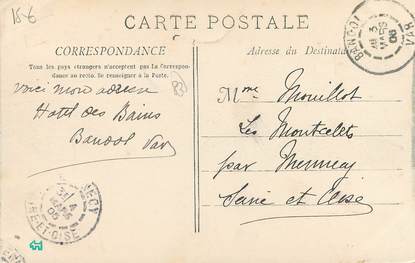 15-6
CARTE POSTALE
CORRESPONDANCE
Tous les pays étrangers n'acceptent pas la Correspon-
dance au recto. Se renseigner à la Poste.
Voici mon adresse
Hotel des Bains
Bandol Var
Adresse du Destinataire
Mme Mouillot
Les Montcelets
par Mennecy
Seine et Oise
BANDOL
3
MARS
06
VAR
NECY
4
MARS
06
ET-OISE